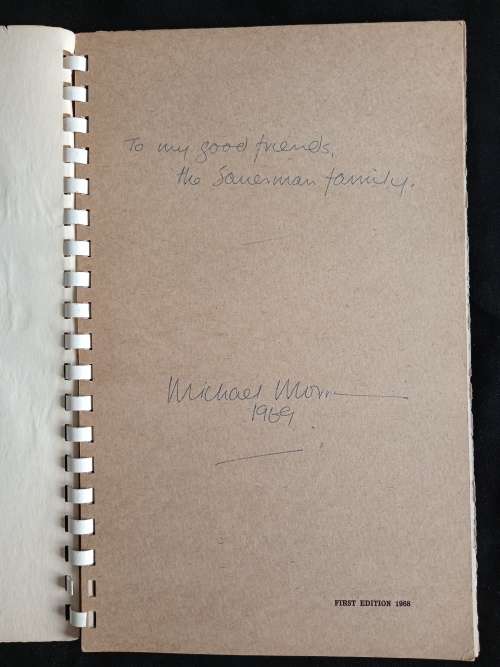 To my good friends,
the Sauerman family.
Michael
1969
FIRST EDITION 1968